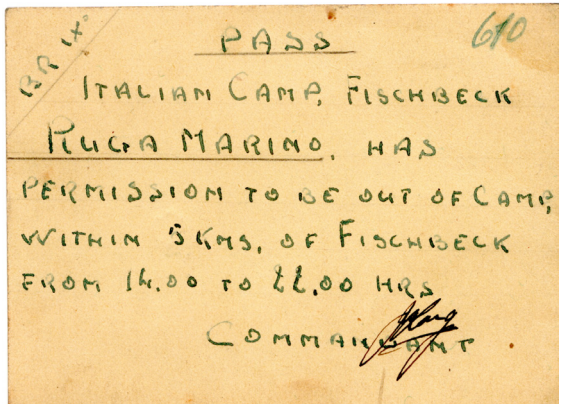 BR IX.
610
PASS
ITALIAN CAMP, FISCHBECK
RUGA MARINO, HAS
PERMISSION TO BE OUT OF CAMP,
WITHIN 5 KMS, OF FISCHBECK
FROM 14.00 TO 22.00 HRS
COMMANDANT